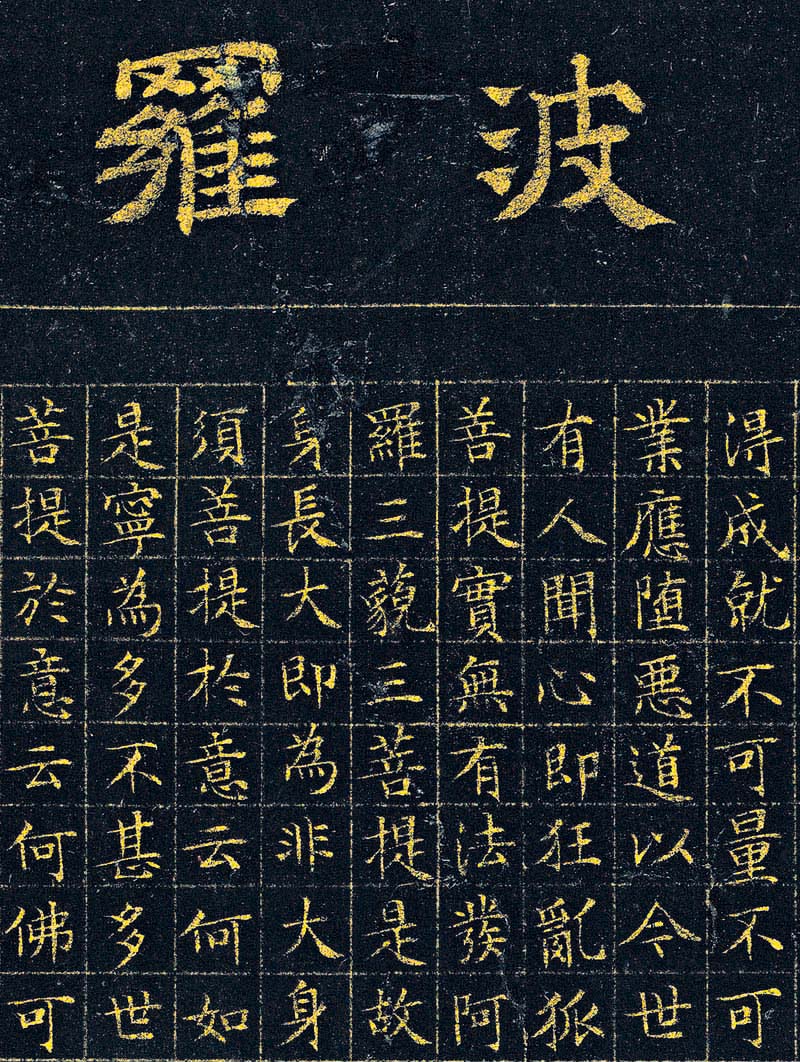 波羅
得成就不可量不可
業應堕悪道以今世
有人聞心即狂亂狐
菩提實無有法發阿
羅三藐三菩提是故
身長大即為非大身
須菩提於意云何如
是寧為多不甚多世
菩提於意云何佛可